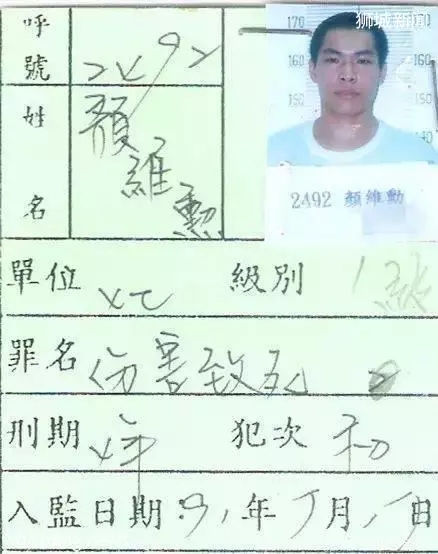 狮城新闻
170
160
150
140
170
160
150
2492 顏維勳
呼號 2492
姓名 顏維勳
單位 級別 1級
罪名 伤害致死
刑期 年 犯次 初
入監日期:91年 月 日